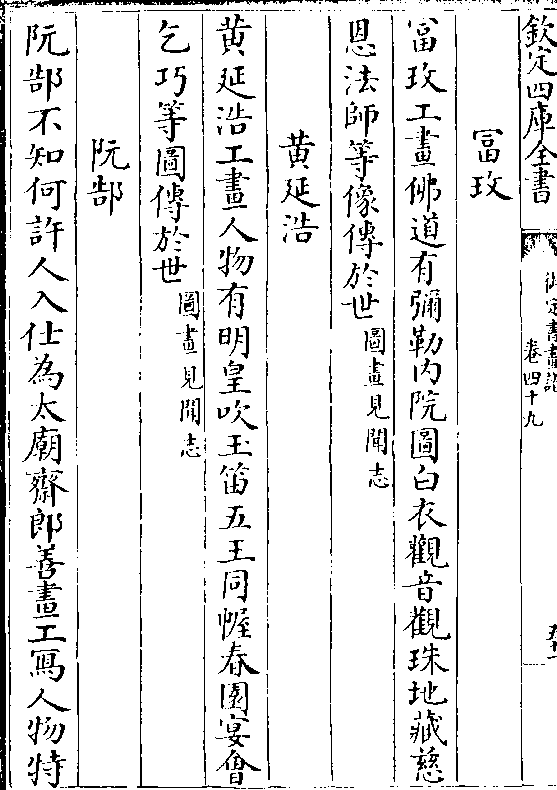 欽定四庫全書
御定書畫譜
卷四十九
富玫
富玫工畫佛道有彌勒内院圖白衣觀音觀珠地藏慈
恩法師等像傳於世圖畫見聞志
黄延浩
黄延浩工畫人物有明皇吹玉笛五王同幄春園宴會
乞巧等圖傳於世圖畫見聞志
阮郜
阮郜不知何許人入仕為太廟齋郎善畫工寫人物特